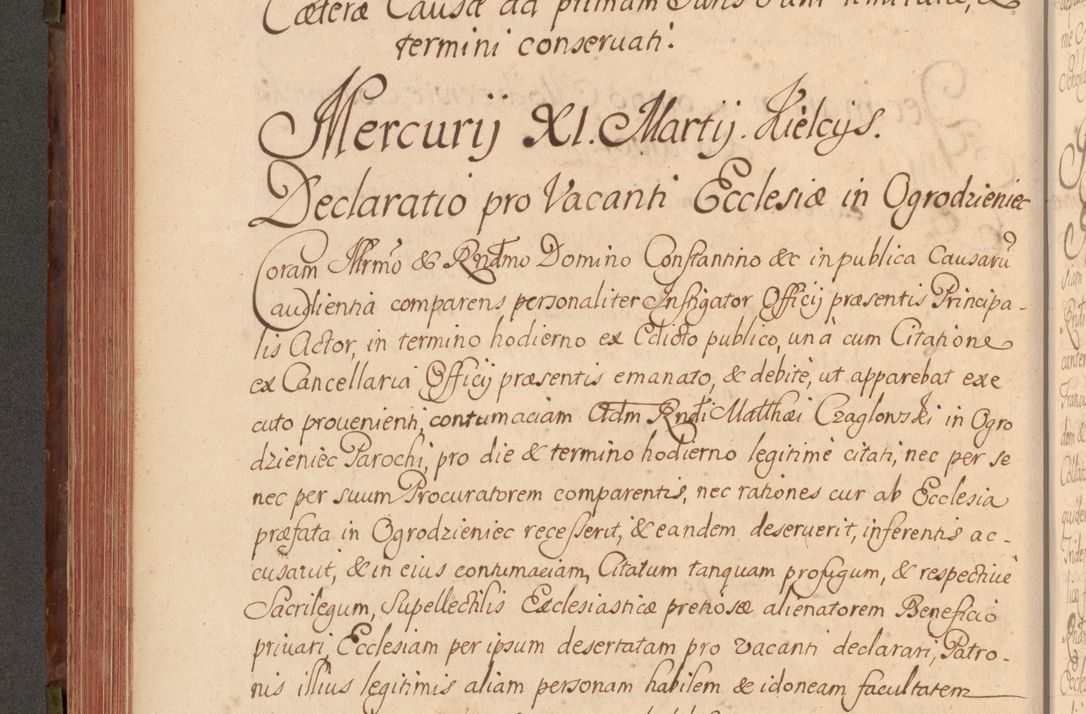 Cæteræ Causæ ad primam Juris
termini conservati.
Mercurij XI. Martij. Kielcijs.
Declaratio pro Vacanti Ecclesiæ in Ogrodzieniec
Coram Illrmo & Rndmo Domino Constantino &c in publica Causarū
audientia comparens personaliter Instigator Officij præsentis Principa-
lis Actor, in termino hodierno ex Edicto publico, unà cum Citatione
ex Cancellaria Officij præsentis emanato, & debitè, ut apparebat exe
cuto provenienti, contumaciam Adm Rndi Matthæi Czaglonski in Ogro
dzieniec Parochi, pro die & termino hodierno legitimè citati, nec per se
nec per suum Procuratorem comparentis, nec rationes cur ab Ecclesia
præfata in Ogrodzieniec recesserit, & eandem deseruerit, inferentis ac-
cusavit, & in eius contumaciam, Citatum tanquam profugum, & respectivè
Sacrilegum, Supellectilis Ecclesiasticæ pretiosæ alienatorem Beneficio
privari, Ecclesiam per ipsum desertatam pro vacanti declarari, Patro-
nis illius legitimis aliam personam habilem & idoneam facultatem